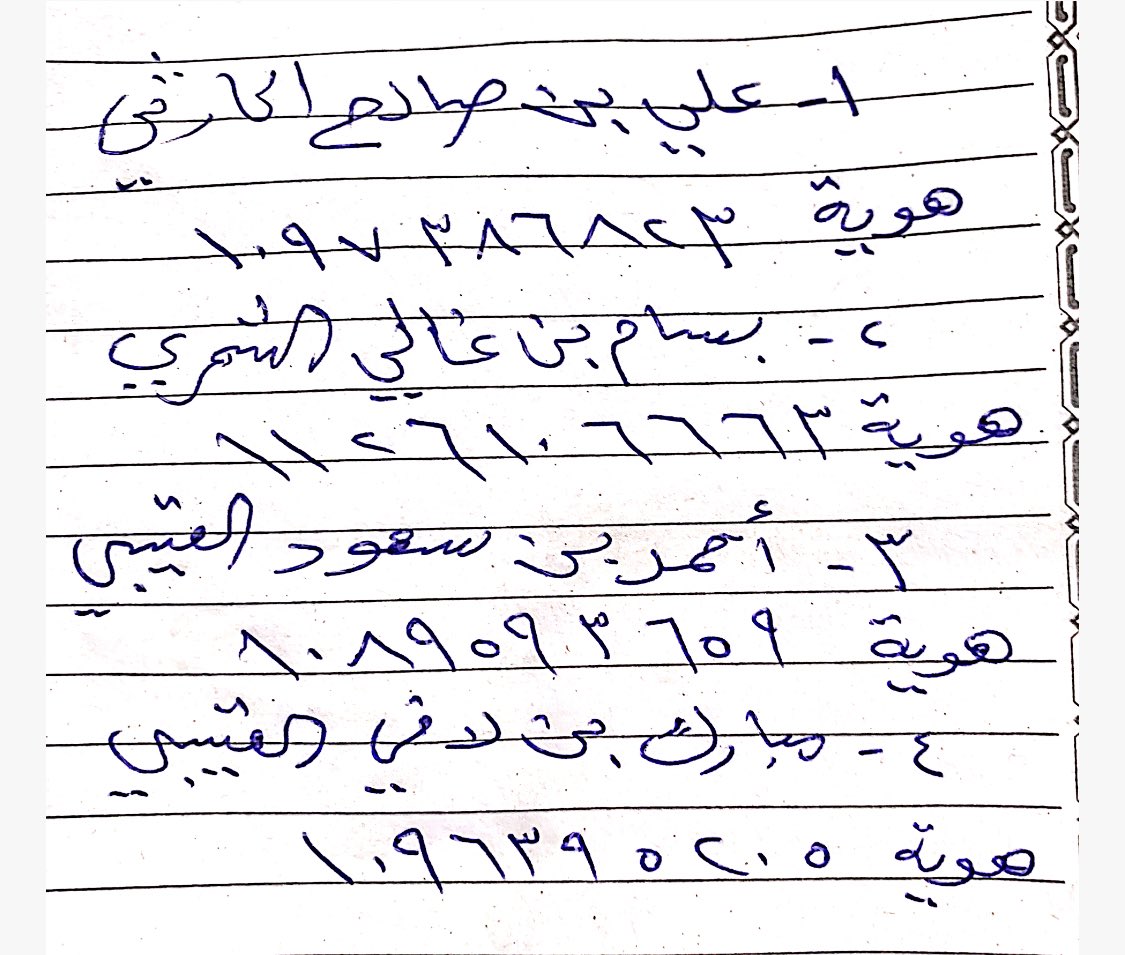 ١- علي بن صالح الحارثي
هوية ١٠٩٧٣٨٦٨٢٣
٢- بسام بن غالي الشمري
هوية ١١٢٦١٠٦٦٦٣
٣- أحمد بن سعود العتيبي
هوية ١٠٨٩٥٩٣٦٥٩
٤- مبارك بن لافي العتيبي
هوية ١٠٩٦٣٩٥٢٠٥